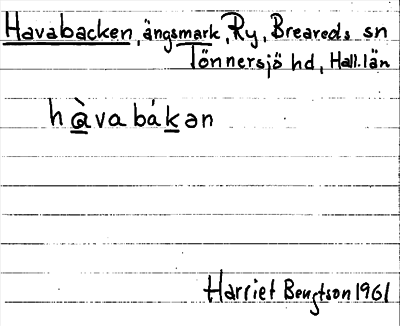 Havabacken, ängsmark, Ry, Breareds sn
Tönnersjö hd, Hall. län
hàvabákan
Harriet Bengtson 1961